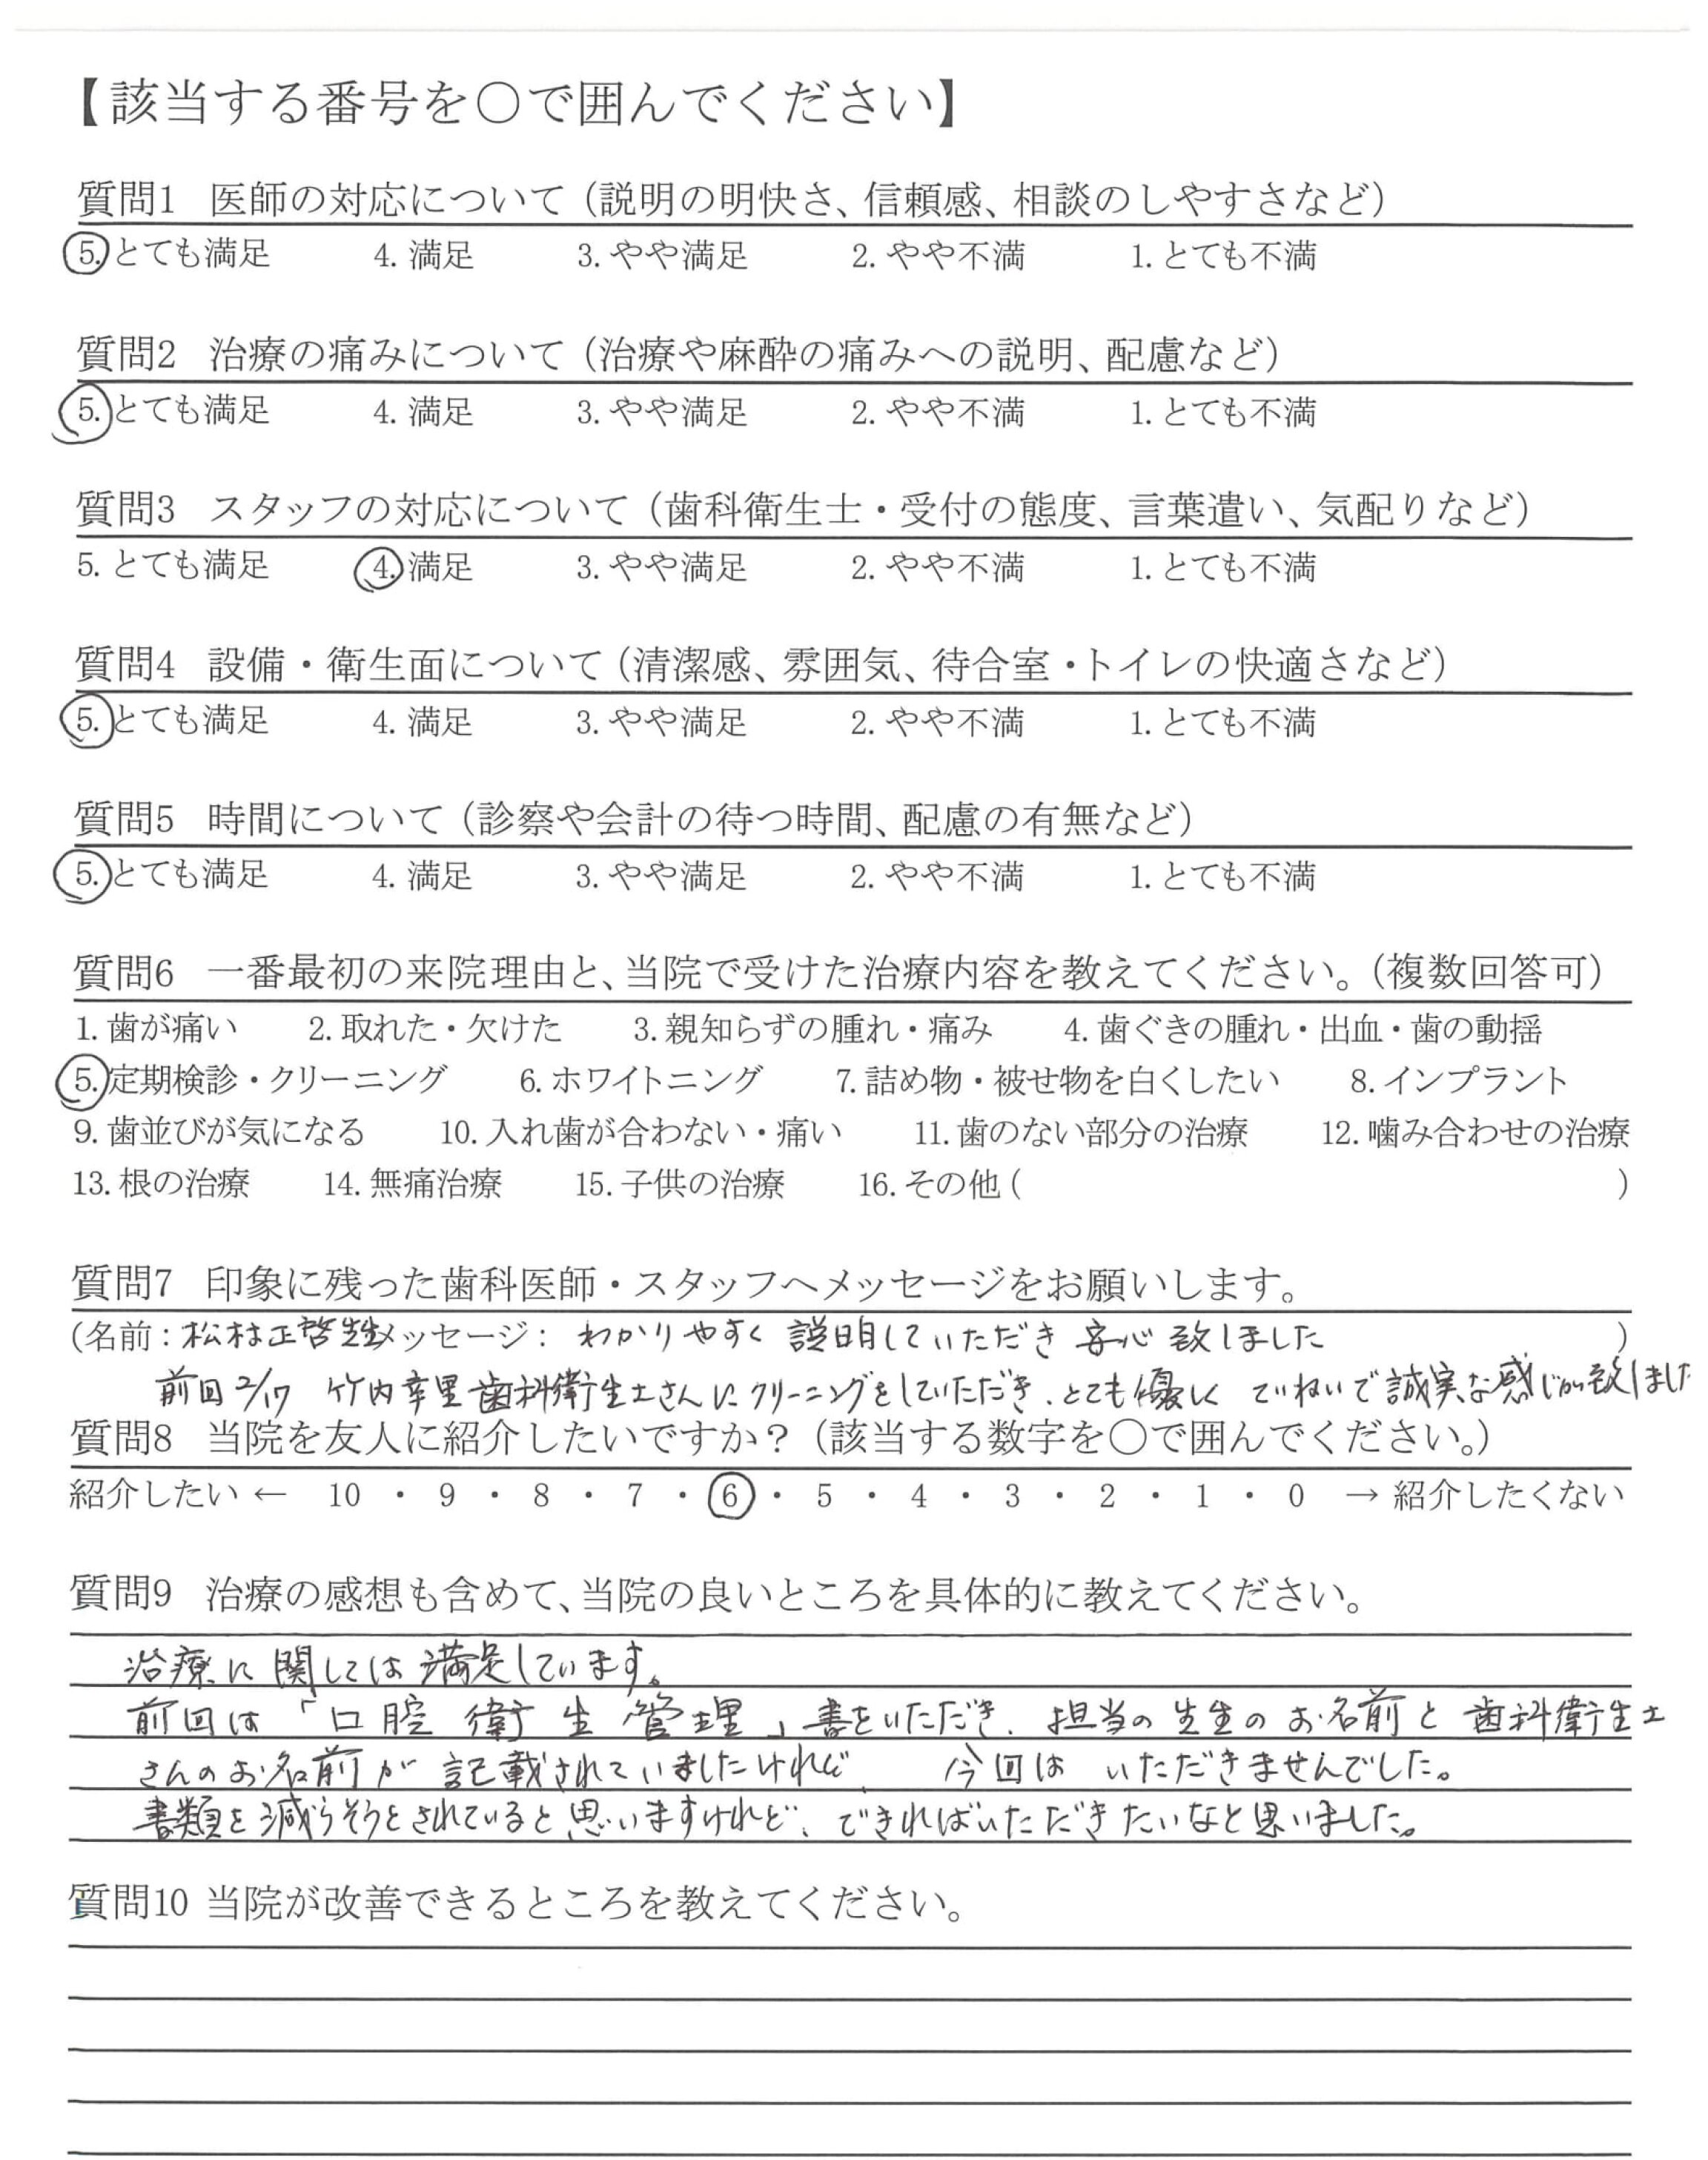 【該当する番号を○で囲んでください】
質問1 医師の対応について（説明の明快さ、信頼感、相談のしやすさなど）
5. とても満足 4. 満足 3. やや満足 2. やや不満 1. とても不満
質問2 治療の痛みについて（治療や麻酔の痛みへの説明、配慮など）
5. とても満足 4. 満足 3. やや満足 2. やや不満 1. とても不満
質問3 スタッフの対応について（歯科衛生士・受付の態度、言葉遣い、気配りなど）
5. とても満足 4. 満足 3. やや満足 2. やや不満 1. とても不満
質問4 設備・衛生面について（清潔感、雰囲気、待合室・トイレの快適さなど）
5. とても満足 4. 満足 3. やや満足 2. やや不満 1. とても不満
質問5 時間について（診察や会計の待つ時間、配慮の有無など）
5. とても満足 4. 満足 3. やや満足 2. やや不満 1. とても不満
質問6 一番最初の来院理由と、当院で受けた治療内容を教えてください。（複数回答可）
1. 歯が痛い 2. 取れた・欠けた 3. 親知らずの腫れ・痛み 4. 歯ぐきの腫れ・出血・歯の動揺
5. 定期検診・クリーニング 6. ホワイトニング 7. 詰め物・被せ物を白くしたい 8. インプラント
9. 歯並びが気になる 10. 入れ歯が合わない・痛い 11. 歯のない部分の治療 12. 噛み合わせの治療
13. 根の治療 14. 無痛治療 15. 子供の治療 16. その他（ ）
質問7 印象に残った歯科医師・スタッフへメッセージをお願いします。
（名前：松村正哲先生 メッセージ： わかりやすく 説明していただき 安心 致しました ）
前回 2/17 竹内幸里 歯科衛生士さんに クリーニングをしていただき、とても優しく ていねいで 誠実な感じが致しました
質問8 当院を友人に紹介したいですか？（該当する数字を○で囲んでください。）
紹介したい ← 10 ・ 9 ・ 8 ・ 7 ・ 6 ・ 5 ・ 4 ・ 3 ・ 2 ・ 1 ・ 0 → 紹介したくない
質問9 治療の感想も含めて、当院の良いところを具体的に教えてください。
治療に関しては満足しています。
前回は「口腔衛生管理」書をいただき、担当の先生のお名前と歯科衛生士
さんのお名前が記載されていましたけれど、 今回は いただきませんでした。
書類を減らそうとされていると思いますけれど、できればいただきたいなと思いました。
質問10 当院が改善できるところを教えてください。